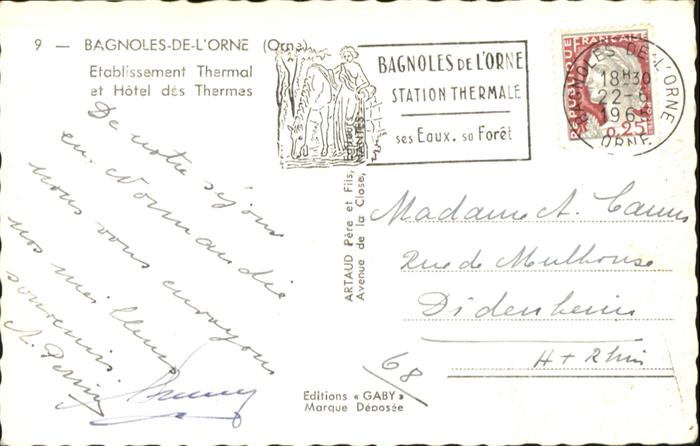 9 — BAGNOLES-DE-L'ORNE (Orne)
Etablissement Thermal
et Hôtel dês Thermes
BAGNOLES DE L'ORNE
STATION THERMALE
ses Eaux. sa Forêt
REPUBLIQUE FRANÇAISE
0,25
BAGNOLES DE L'ORNE
18H30
22-9
ORNE
De notre séjour
en Normandie
nous vous envoyons
nos meilleurs
souvenirs
ARTAUD Père et Fils, Editeurs
Avenue de la Close, NANTES
Madame A.
Rue de Mulhouse
Didenheim
Ht Rhin
68
Editions « GABY »
Marque Déposée